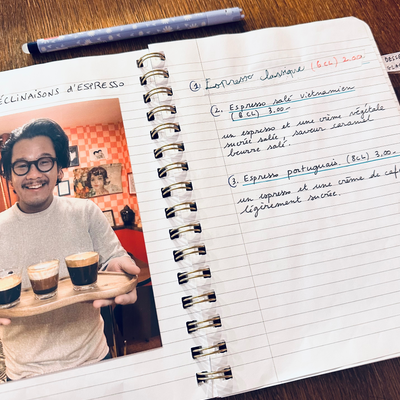 ÉCLINAISONS D'ESPRESSO
① Espresso classique (6CL) 2.00
2. Espresso salé vietnamien
(8CL) 3.00
un espresso et une crème végétale
sucrée salée, saveur caramel
beurre salé.
③. Espresso portugais. (8CL) 3.00
un espresso et une crème de caf
légèrement sucrée.